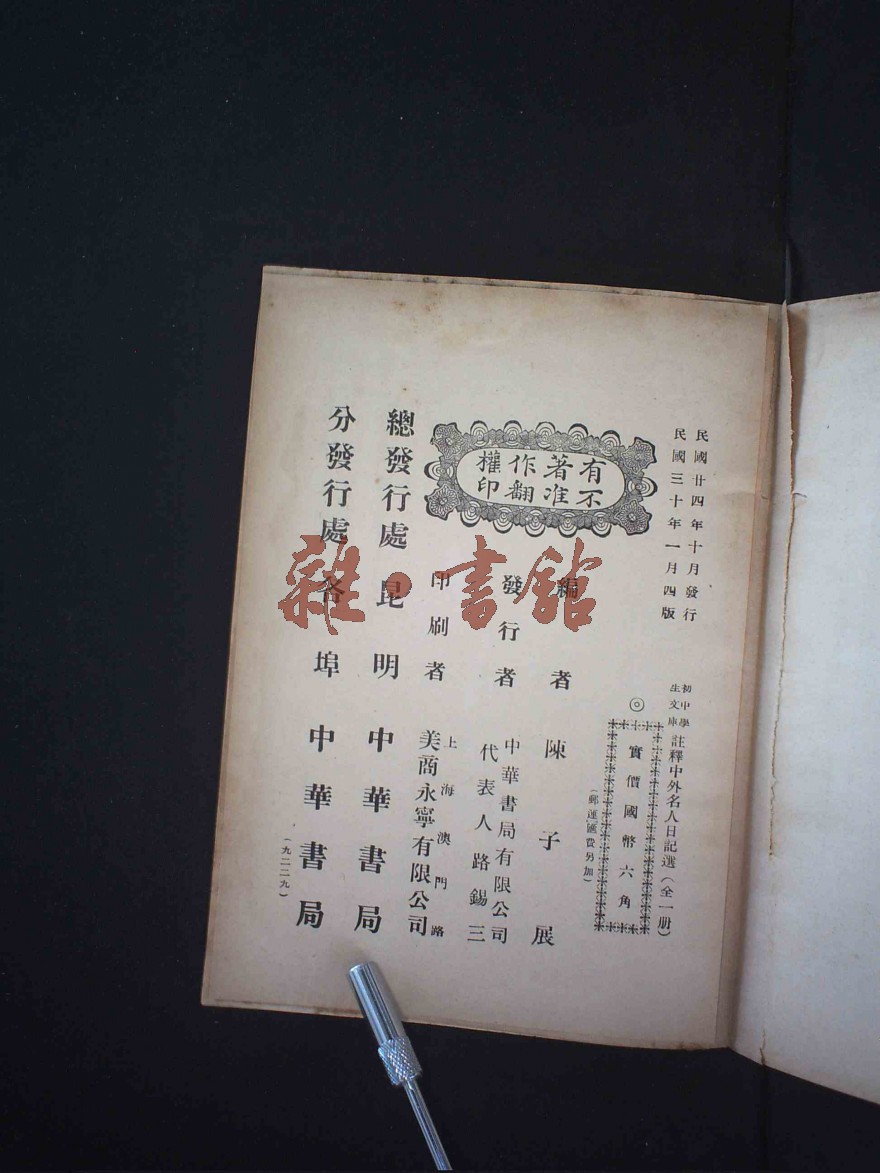 民國廿四年十月發行
民國三十年一月四版
初中學生文庫 註釋中外名人日記選（全一册）
◎
實價國幣六角
（郵運匯費另加）
有著作權
不准翻印
編者 陳子展
發行者 中華書局有限公司
代表人路錫三
印刷者 上海澳門路
美商永寧有限公司
總發行處 昆明 中華書局
分發行處 各埠 中華書局
（九二二九）
雜·書館